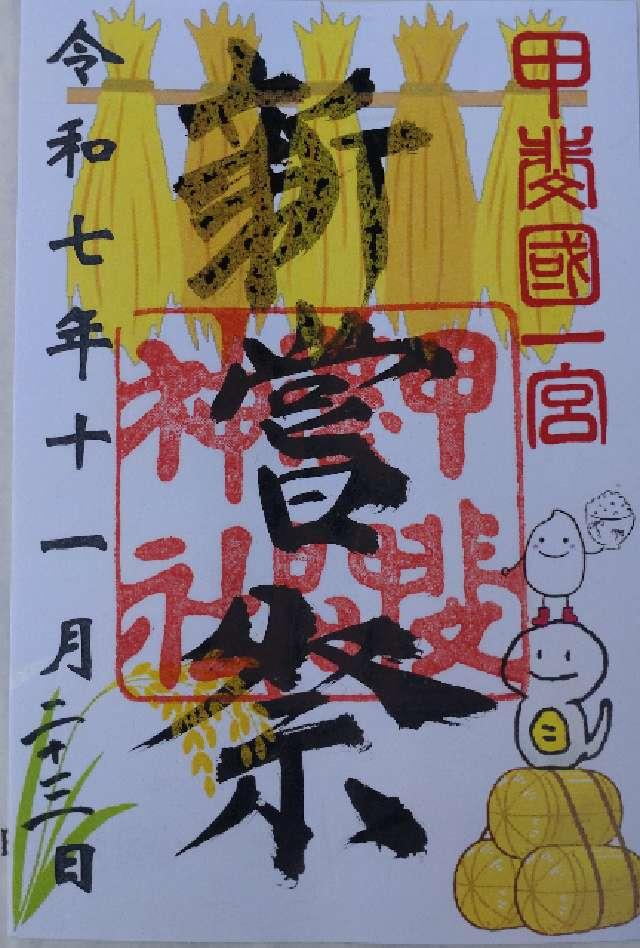 甲斐國一宮
新嘗祭
甲斐
神社
令和七年十一月二十三日